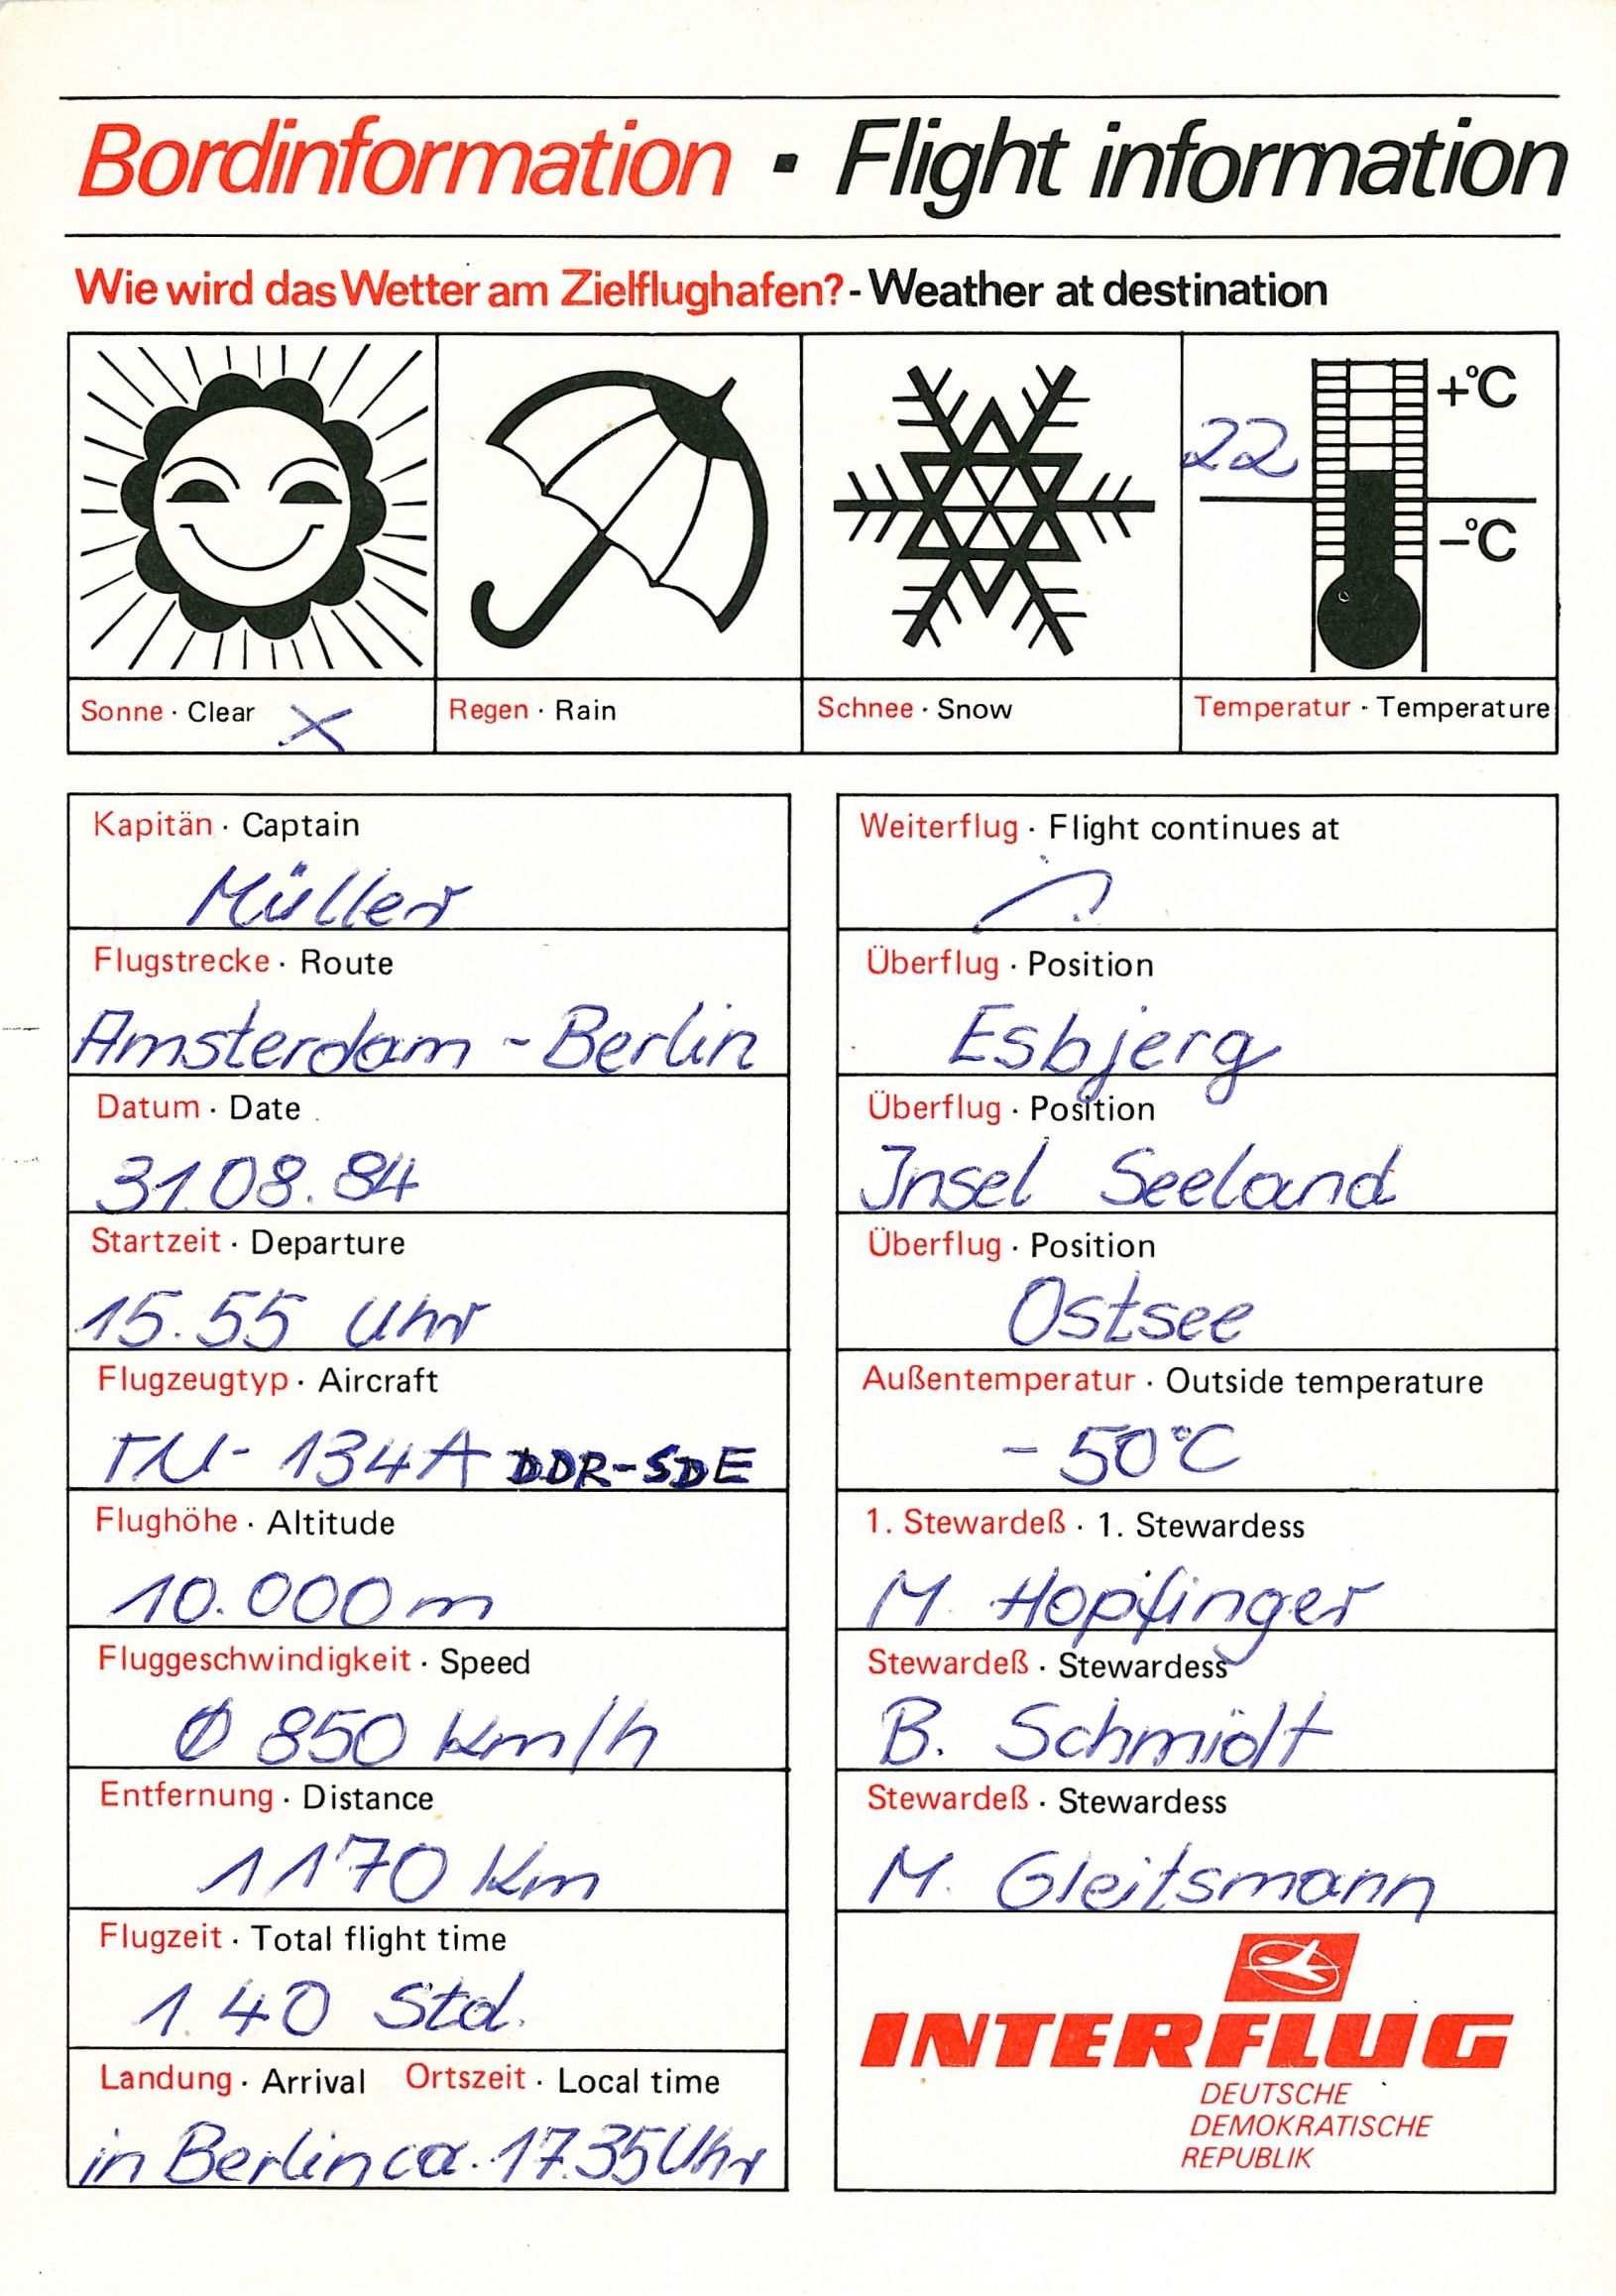 Bordinformation · Flight information
Wie wird das Wetter am Zielflughafen? - Weather at destination
22
+°C
-°C
Sonne · Clear X
Regen · Rain
Schnee · Snow
Temperatur · Temperature
Kapitän · Captain
Müller
Flugstrecke · Route
Amsterdam - Berlin
Datum · Date
31.08.84
Startzeit · Departure
15.55 Uhr
Flugzeugtyp · Aircraft
TU-134A DDR-SDE
Flughöhe · Altitude
10.000 m
Fluggeschwindigkeit · Speed
Ø 850 km/h
Entfernung · Distance
1170 Km
Flugzeit · Total flight time
1.40 Std.
Landung · Arrival Ortszeit · Local time
in Berlin ca. 17.35 Uhr
Weiterflug · Flight continues at
Überflug · Position
Esbjerg
Überflug · Position
Insel Seeland
Überflug · Position
Ostsee
Außentemperatur · Outside temperature
- 50°C
1. Stewardeß · 1. Stewardess
M. Hopfinger
Stewardeß · Stewardess
B. Schmidt
Stewardeß · Stewardess
M. Gleitsmann
INTERFLUG
DEUTSCHE
DEMOKRATISCHE
REPUBLIK